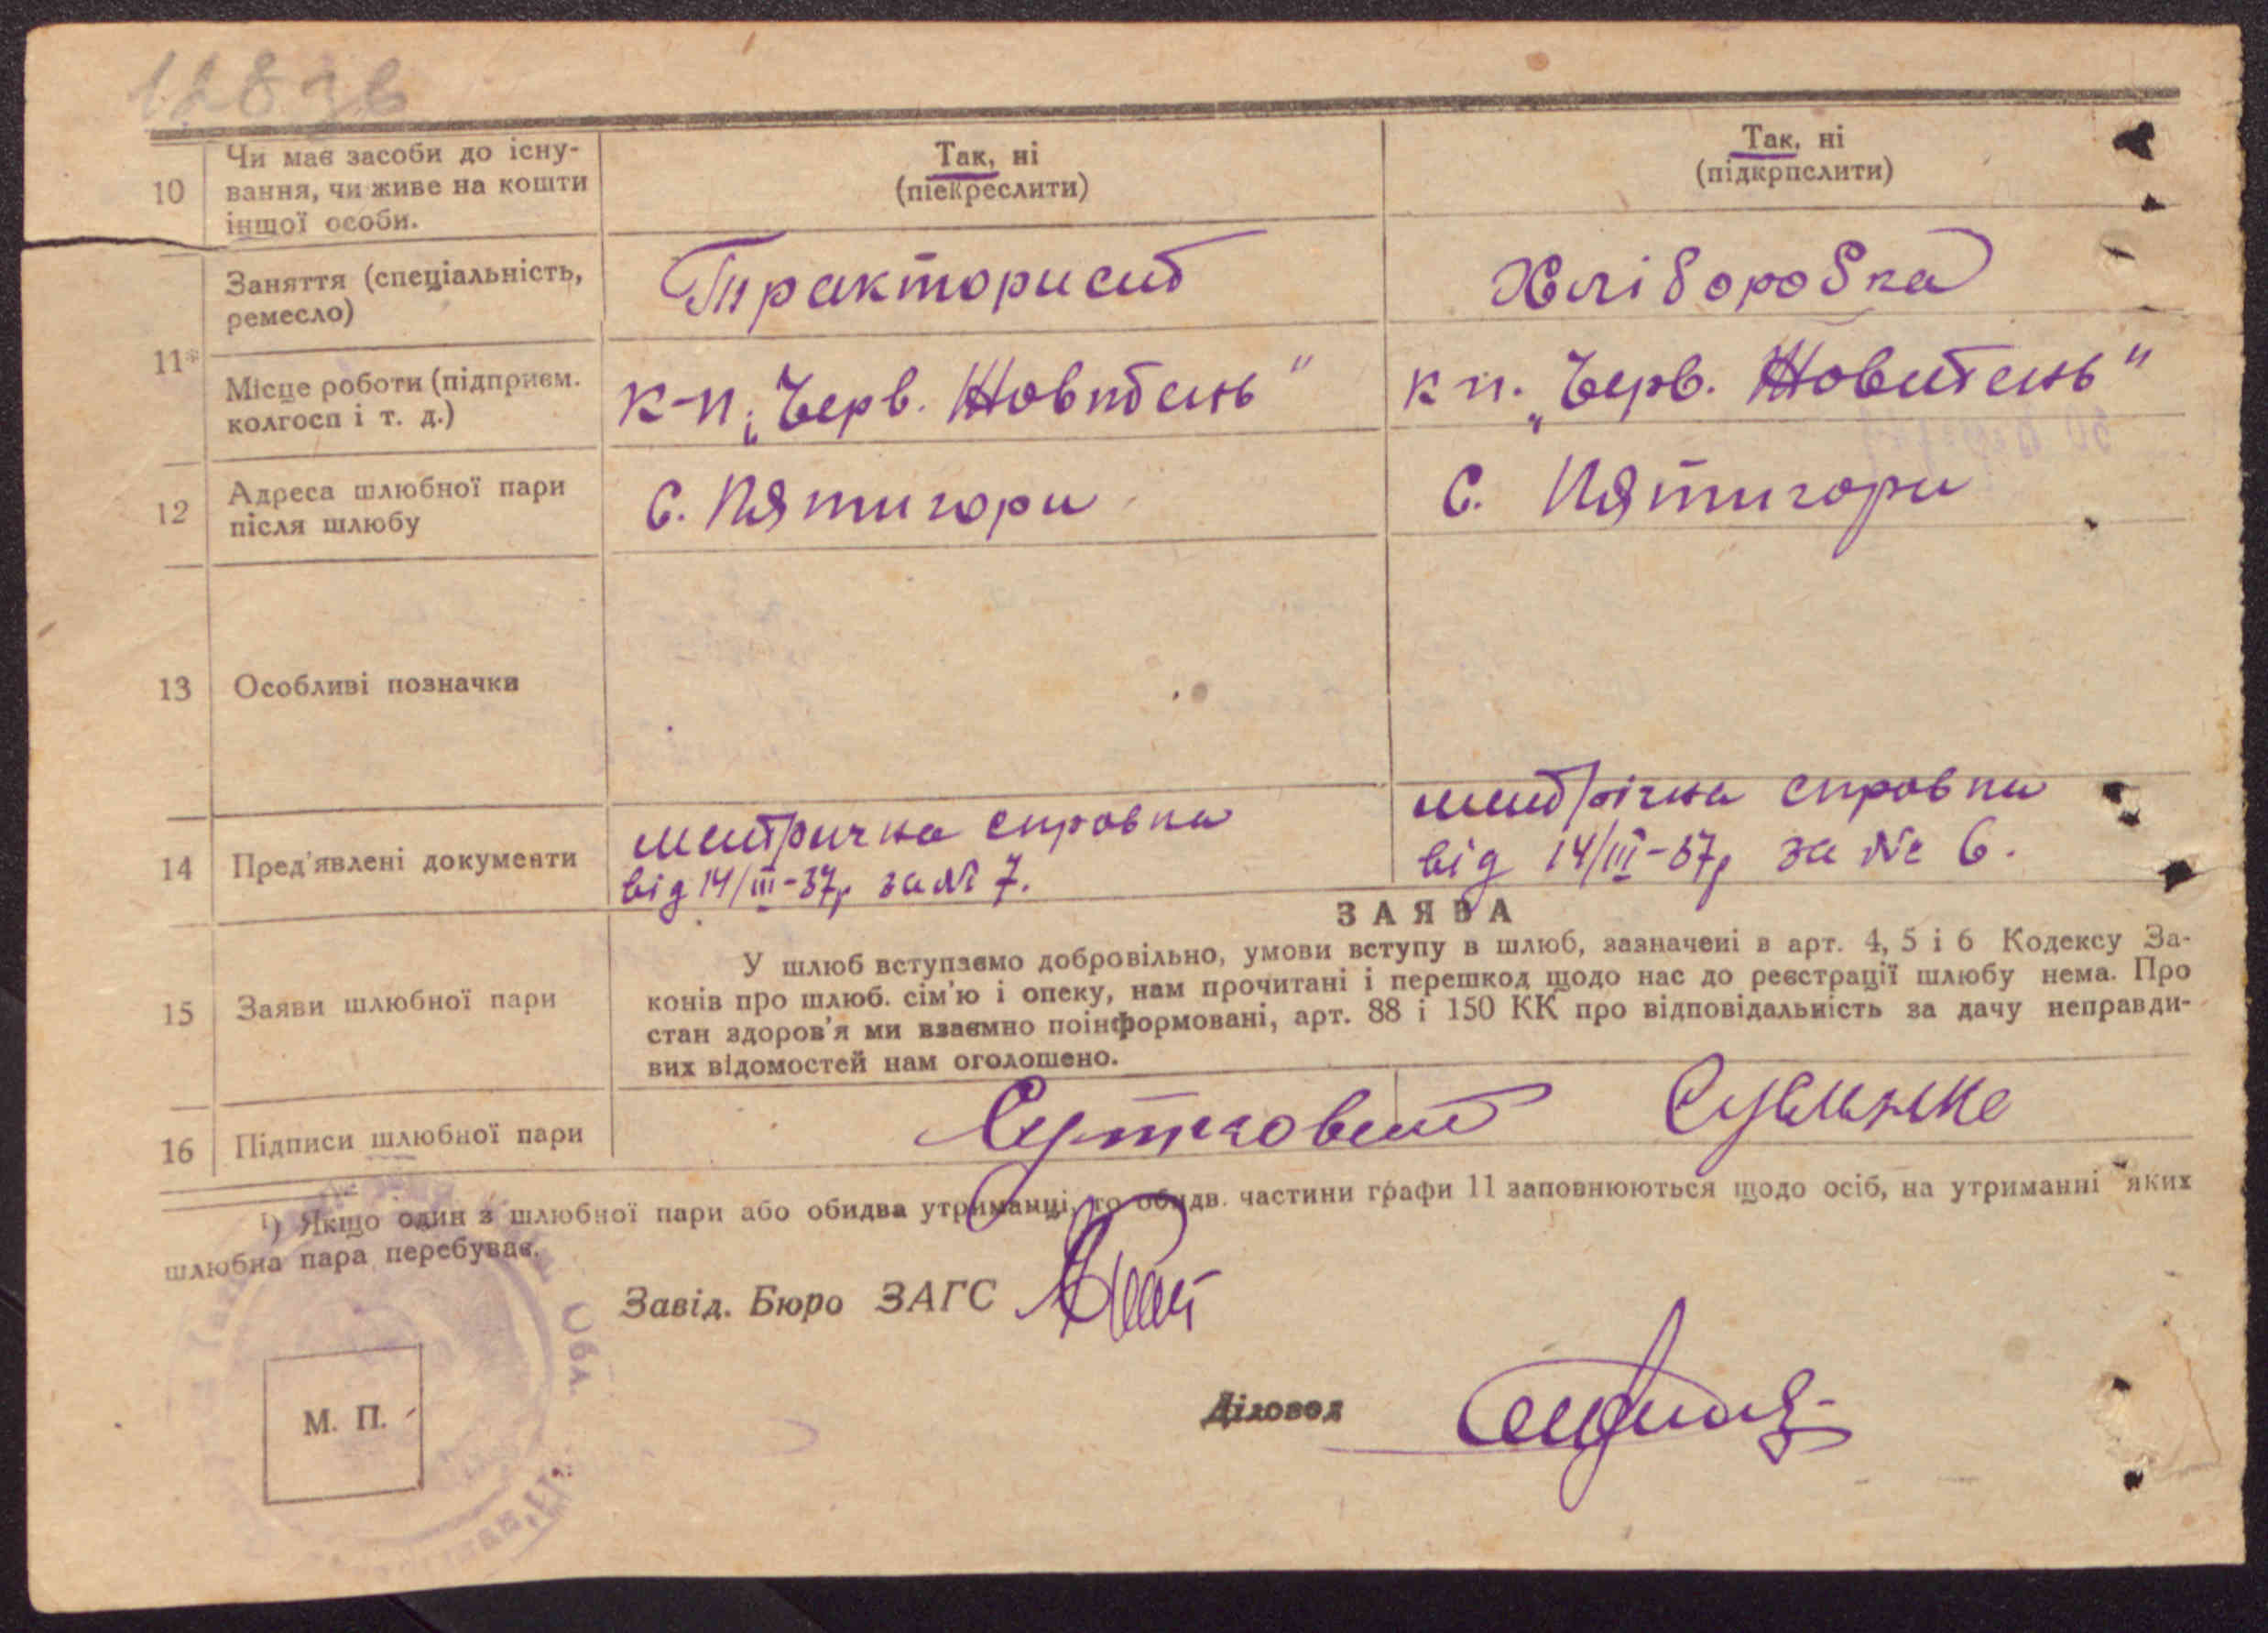 128зв
10
Чи має засоби до існу-
вання, чи живе на кошти
іншої особи.
Так, ні
(піекреслити)
Так, ні
(підкрпслити)
11*
Заняття (спеціальність,
ремесло)
Тракторист
Хліборобка
Місце роботи (підприєм.
колгосп і т. д.)
к-п. „Черв. Жовтень"
к п. „Черв. Жовтень"
12
Адреса шлюбної пари
після шлюбу
с. Пятигори
с. Пятигори
13
Особливі позначки
14
Пред'явлені документи
метрична справка
від 14/III-37р за № 7.
метрічна справка
від 14/III-37р за № 6.
ЗАЯВА
15
Заяви шлюбної пари
У шлюб вступаємо добровільно, умови вступу в шлюб, зазначені в арт. 4, 5 і 6 Кодексу За-
конів про шлюб. сім'ю і опеку, нам прочитані і перешкод щодо нас до реєстрації шлюбу нема. Про
стан здоров'я ми взаємно поінформовані, арт. 88 і 150 КК про відповідальність за дачу неправди-
вих відомостей нам оголошено.
16
Підписи шлюбної пари
¹) Якщо один з шлюбної пари або обидва утриманці, то обидв. частини графи 11 заповнюються щодо осіб, на утриманні яких
шлюбна пара перебуває.
Завід. Бюро ЗАГС
Діловод
М. П.
Обл.